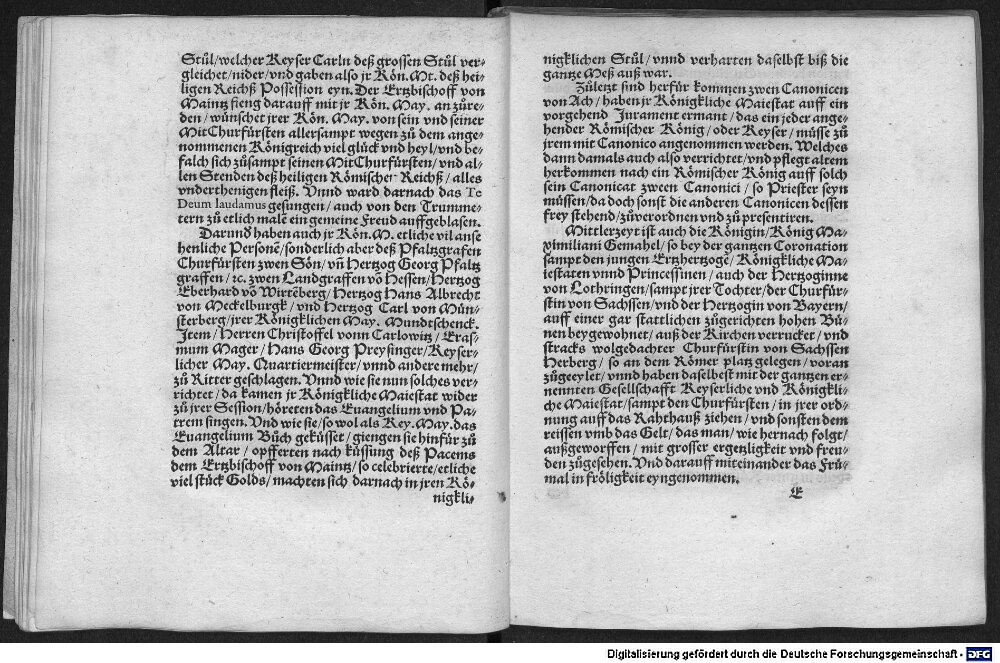 Stůl/welcher Keyser Carln deß grossen Stůl ver⸗
gleichet/nider/vnd gaben also jr Kön. Mt. deß hei⸗
ligen Reichß Possession eyn. Der Ertzbischoff von
Maintz fieng darauff mit jr Kön. May. an zůre⸗
den/wünschet jrer Kön. May. von sein vnd seiner
MitChurfürsten allersampt wegen zů dem ange⸗
nommenen Königreich viel glück vnd heyl/vnd be⸗
falch sich zůsampt seinen MitChurfürsten/vnd al⸗
len Stenden deß heiligen Römischer Reichß/alles
vnderthenigen fleiß. Vnnd ward darnach das Te
Deum laudamus gesungen/auch von den Trumme⸗
tern zů etlich malē ein gemeine Freud auffgeblasen.
Darund haben auch jr Kön. M. etliche vil anse
henliche Personē/sonderlich aber deß Pfaltzgrafen
Churfürsten zwen Sön/vn̄ Hertzog Georg Pfaltz
graffen/ꝛc. zwen Landgraffen vō Hessen/Hertzog
Eberhard vō Wirtēberg/Hertzog Hans Albrecht
von Meckelburgk/vnd Hertzog Carl von Mün⸗
sterberg/jrer Königklichen May. Mundtschenck.
Jtem/Herren Christoffel vonn Carlowitz/Eras⸗
mum Mager/Hans Georg Preysinger/Keyser⸗
licher May. Quartiermeister/vnnd andere mehr/
zů Ritter geschlagen. Vnnd wie sie nun solches ver⸗
richtet/da kamen jr Königkliche Maiestat wider
zů jrer Session/höreten das Euangelium vnd Pa⸗
trem singen. Vnd wie sie/so wol als Key. May. das
Euangelium Bůch geküsset/giengen sie hinfür zů
dem Altar/opfferten nach küssung deß Pacems
dem Ertzbischoff von Maintz/so celebrierte/etliche
viel stück Golds/machten sich darnach in jren Kö⸗
nigkli⸗
nigklichen Stůl/vnnd verharten daselbst biß die
gantze Meß auß war.
Zůletzt sind herfür kommen zwen Canonicen
von Ach/haben jr Königkliche Maiestat auff ein
vorgehend Jurament ermant/das ein jeder ange⸗
hender Römischer König/oder Keyser/müsse zů
jrem mit Canonico angenommen werden. Welches
dann damals auch also verrichtet/vnd pflegt altem
herkommen nach ein Römischer König auff solch
sein Canonicat zween Canonici/so Priester seyn
müssen/da doch sonst die anderen Canonicen dessen
frey stehend/zůverordnen vnd zů presentiren.
Mittlerzeyt ist auch die Königin/König Ma⸗
ximiliani Gemahel/so bey der gantzen Coronation
sampt den jungen Ertzhertzogē/Königkliche Ma⸗
iestaten vnnd Princessinen/auch der Hertzoginne
von Lothringen/sampt jrer Tochter/der Churfür⸗
stin von Sachssen/vnd der Hertzogin von Bayern/
auff einer gar stattlichen zůgerichten hohen Bü⸗
nen beygewohnet/auß der Kirchen verrucket/vnd
stracks wolgedachter Churfürstin von Sachssen
Herberg/so an dem Römer platz gelegen/voran
zůgeeylet/vnnd haben daselbest mit der gantzen er⸗
nennten Gesellschafft Keyserliche vnd Königkli⸗
che Maiestat/sampt den Churfürsten/in jrer ord⸗
nung auff das Rahthauß ziehen/vnd sonsten dem
reissen vmb das Gelt/das man/wie hernach folgt/
außgeworffen/mit grosser ergetzligkeit vnd freu⸗
den zůgesehen. Vnd darauff miteinander das Frů⸗
mal in fröligkeit eyngenommen.
E
Digitalisierung gefördert durch die Deutsche Forschungsgemeinschaft - DFG